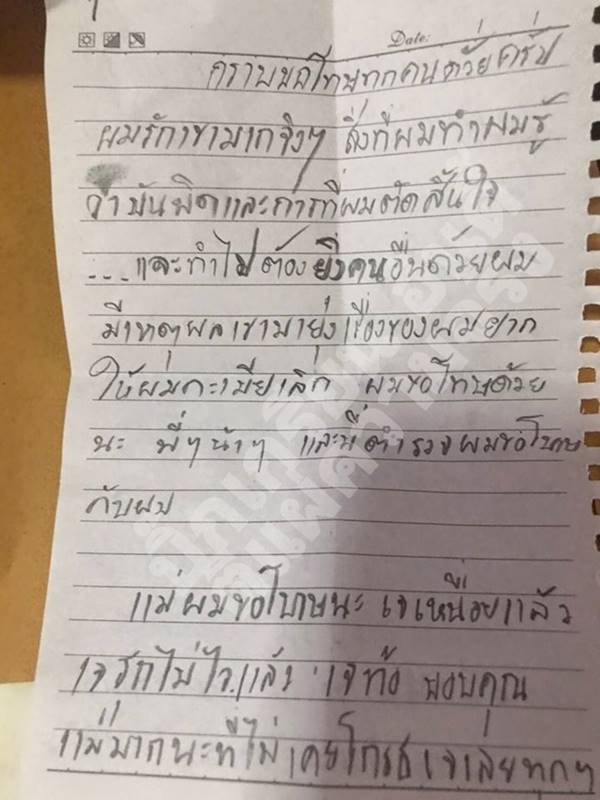 Date:
กราบขอโทษทุกคนด้วยครับ
ผมรักเขามากจิงๆ สิ่งที่ผมทำผมรู้
ว่ามันผิดและการที่ผมตัดสินใจ
... และทำไปต้องยิงคนอื่นด้วยผม
มีเหตุผลเขามายุ่งเรื่องของผมยาก
ให้ผมกะเมียเลิก ผมขอโทษด้วย
นะ พี่ๆน้าๆ และพี่ตำรวจผมขอโทษ
กับผม
แม่ผมขอโทษนะ เจเหนื่อยแล้ว
เจรักไม่ไหวแล้ว เจท้อ ขอบคุณ
แม่มากนะที่ไม่เคยโกรธเจเลยทุกๆ